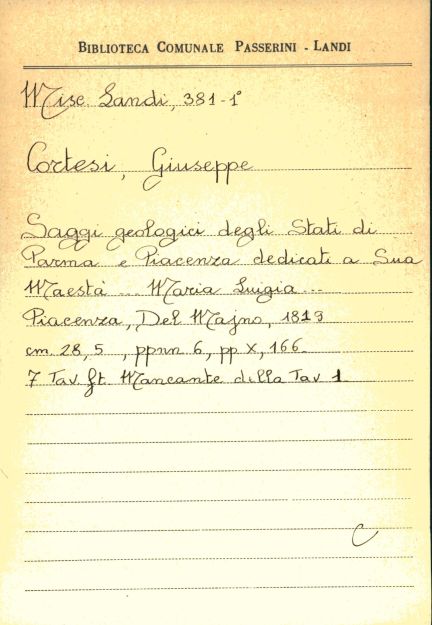 BIBLIOTECA COMUNALE PASSERINI - LANDI
Misc. Landi, 381-1°
Cortesi, Giuseppe
Saggi geologici degli Stati di
Parma e Piacenza dedicati a Sua
Maestà ... Maria Luigia ...
Piacenza, Del Majno, 1819
cm. 28,5 , ppnn 6, pp X, 166.
7 Tav. ft. Mancante della Tav 1.
C